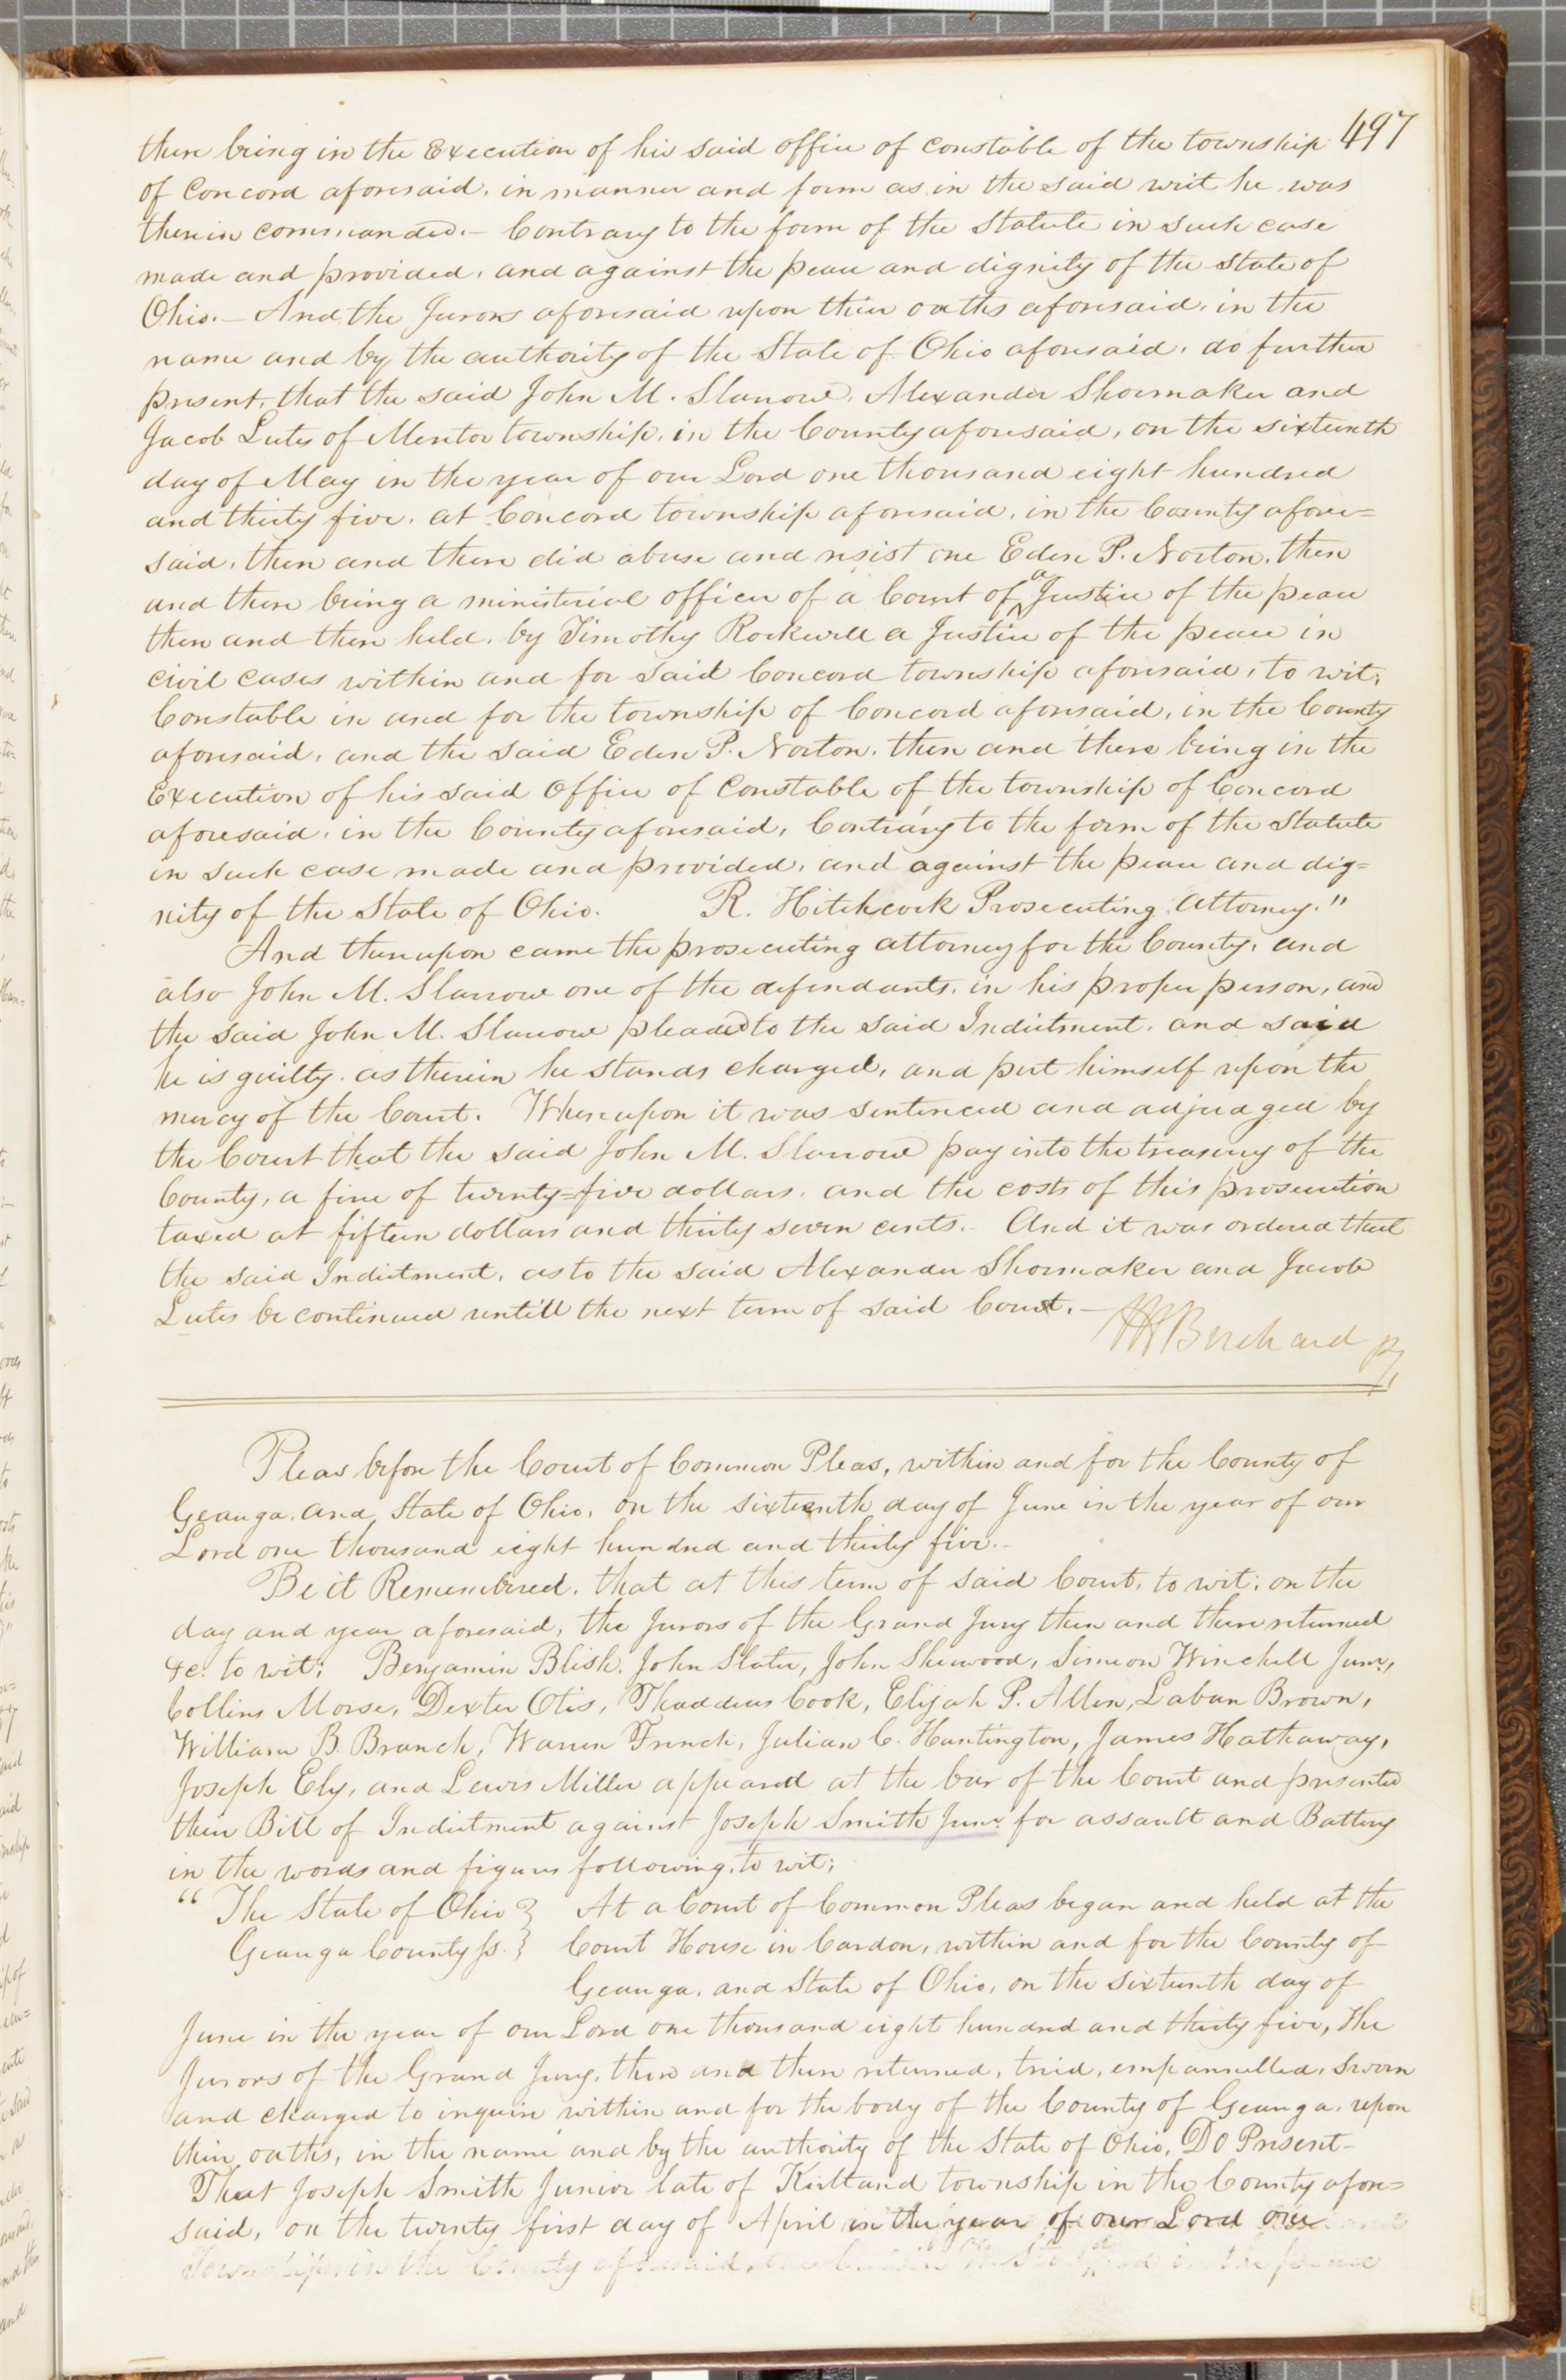 497
then being in the Execution of his said office of constable of the township
of Concord aforesaid, in manner and form as in the said writ he was
therein commanded.— Contrary to the form of the Statute in such case
made and provided, and against the peace and dignity of the State of
Ohio.— And the Jurors aforesaid upon their oaths aforesaid, in the
name and by the authority of the State of Ohio aforesaid, do further
present, that the said John M. Slarrow, Alexander Shoemaker and
Jacob Lutes of Mentor township, in the County aforesaid, on the sixteenth
day of May in the year of our Lord one thousand eight hundred
and thirty five, at Concord township aforesaid, in the County afore=
said, then and there did abuse and resist one Eden P. Norton, then
and there being a ministerial officer of a Court of a Justice of the peace
then and there held, by Timothy Rockwell a Justice of the peace in
civil cases within and for said Concord township aforesaid, to wit;
Constable in and for the township of Concord aforesaid, in the County
aforesaid, and the said Eden P. Norton, then and there being in the
Execution of his said Office of Constable of the township of Concord
aforesaid, in the County aforesaid, Contrary to the form of the Statute
in such case made and provided, and against the peace and dig=
nity of the State of Ohio. R. Hitchcock Prosecuting Attorney."
And thereupon came the prosecuting attorney for the County, and
also John M. Slarrow one of the defendants, in his proper person, and
the said John M. Slarrow pleaded to the said Indictment, and said
he is guilty as therein he stands charged, and put himself upon the
mercy of the Court. Whereupon it was sentenced and adjudged by
the Court that the said John M. Slarrow pay into the treasury of the
County, a fine of twenty=five dollars, and the costs of this prosecution
taxed at fifteen dollars and thirty seven cents. And it was ordered that
the said Indictment, as to the said Alexander Shoemaker and Jacob
Lutes be continued untill the next term of said Court.—
Birchard
Pleas before the Court of Common Pleas, within and for the County of
Geauga, and State of Ohio, on the sixteenth day of June in the year of our
Lord one thousand eight hundred and thirty five.—
Be it Remembered, that at this term of said Court, to wit; on the
day and year aforesaid, the Jurors of the Grand Jury then and there returned
&c. to wit; Benjamin Blish, John Slater, John Sherwood, Simeon Winchell Junr.,
Collins Morse, Dexter Otis, Thaddeus Cook, Elijah P. Allen, Laban Brown,
William B. Branch, Warren French, Julian C. Huntington, James Hathaway,
Joseph Ely, and Lewis Miller appeared at the bar of the Court and presented
their Bill of Indictment against Joseph Smith Junr. for assault and Battery
in the words and figures following, to wit;
"The State of Ohio } At a Court of Common Pleas began and held at the
Geauga County ss. } Court House in Cardon, within and for the County of
Geauga, and State of Ohio, on the sixteenth day of
June in the year of our Lord one thousand eight hundred and thirty five, the
Jurors of the Grand Jury, then and there returned, tried, empannelled, sworn
and charged to inquire within and for the body of the County of Geauga, upon
their oaths, in the name and by the authority of the State of Ohio, Do Present—
That Joseph Smith Junior late of Kirtland township in the County afore=
said, on the twenty first day of April in the year of our Lord one
Township, in the County aforesaid, in the peace